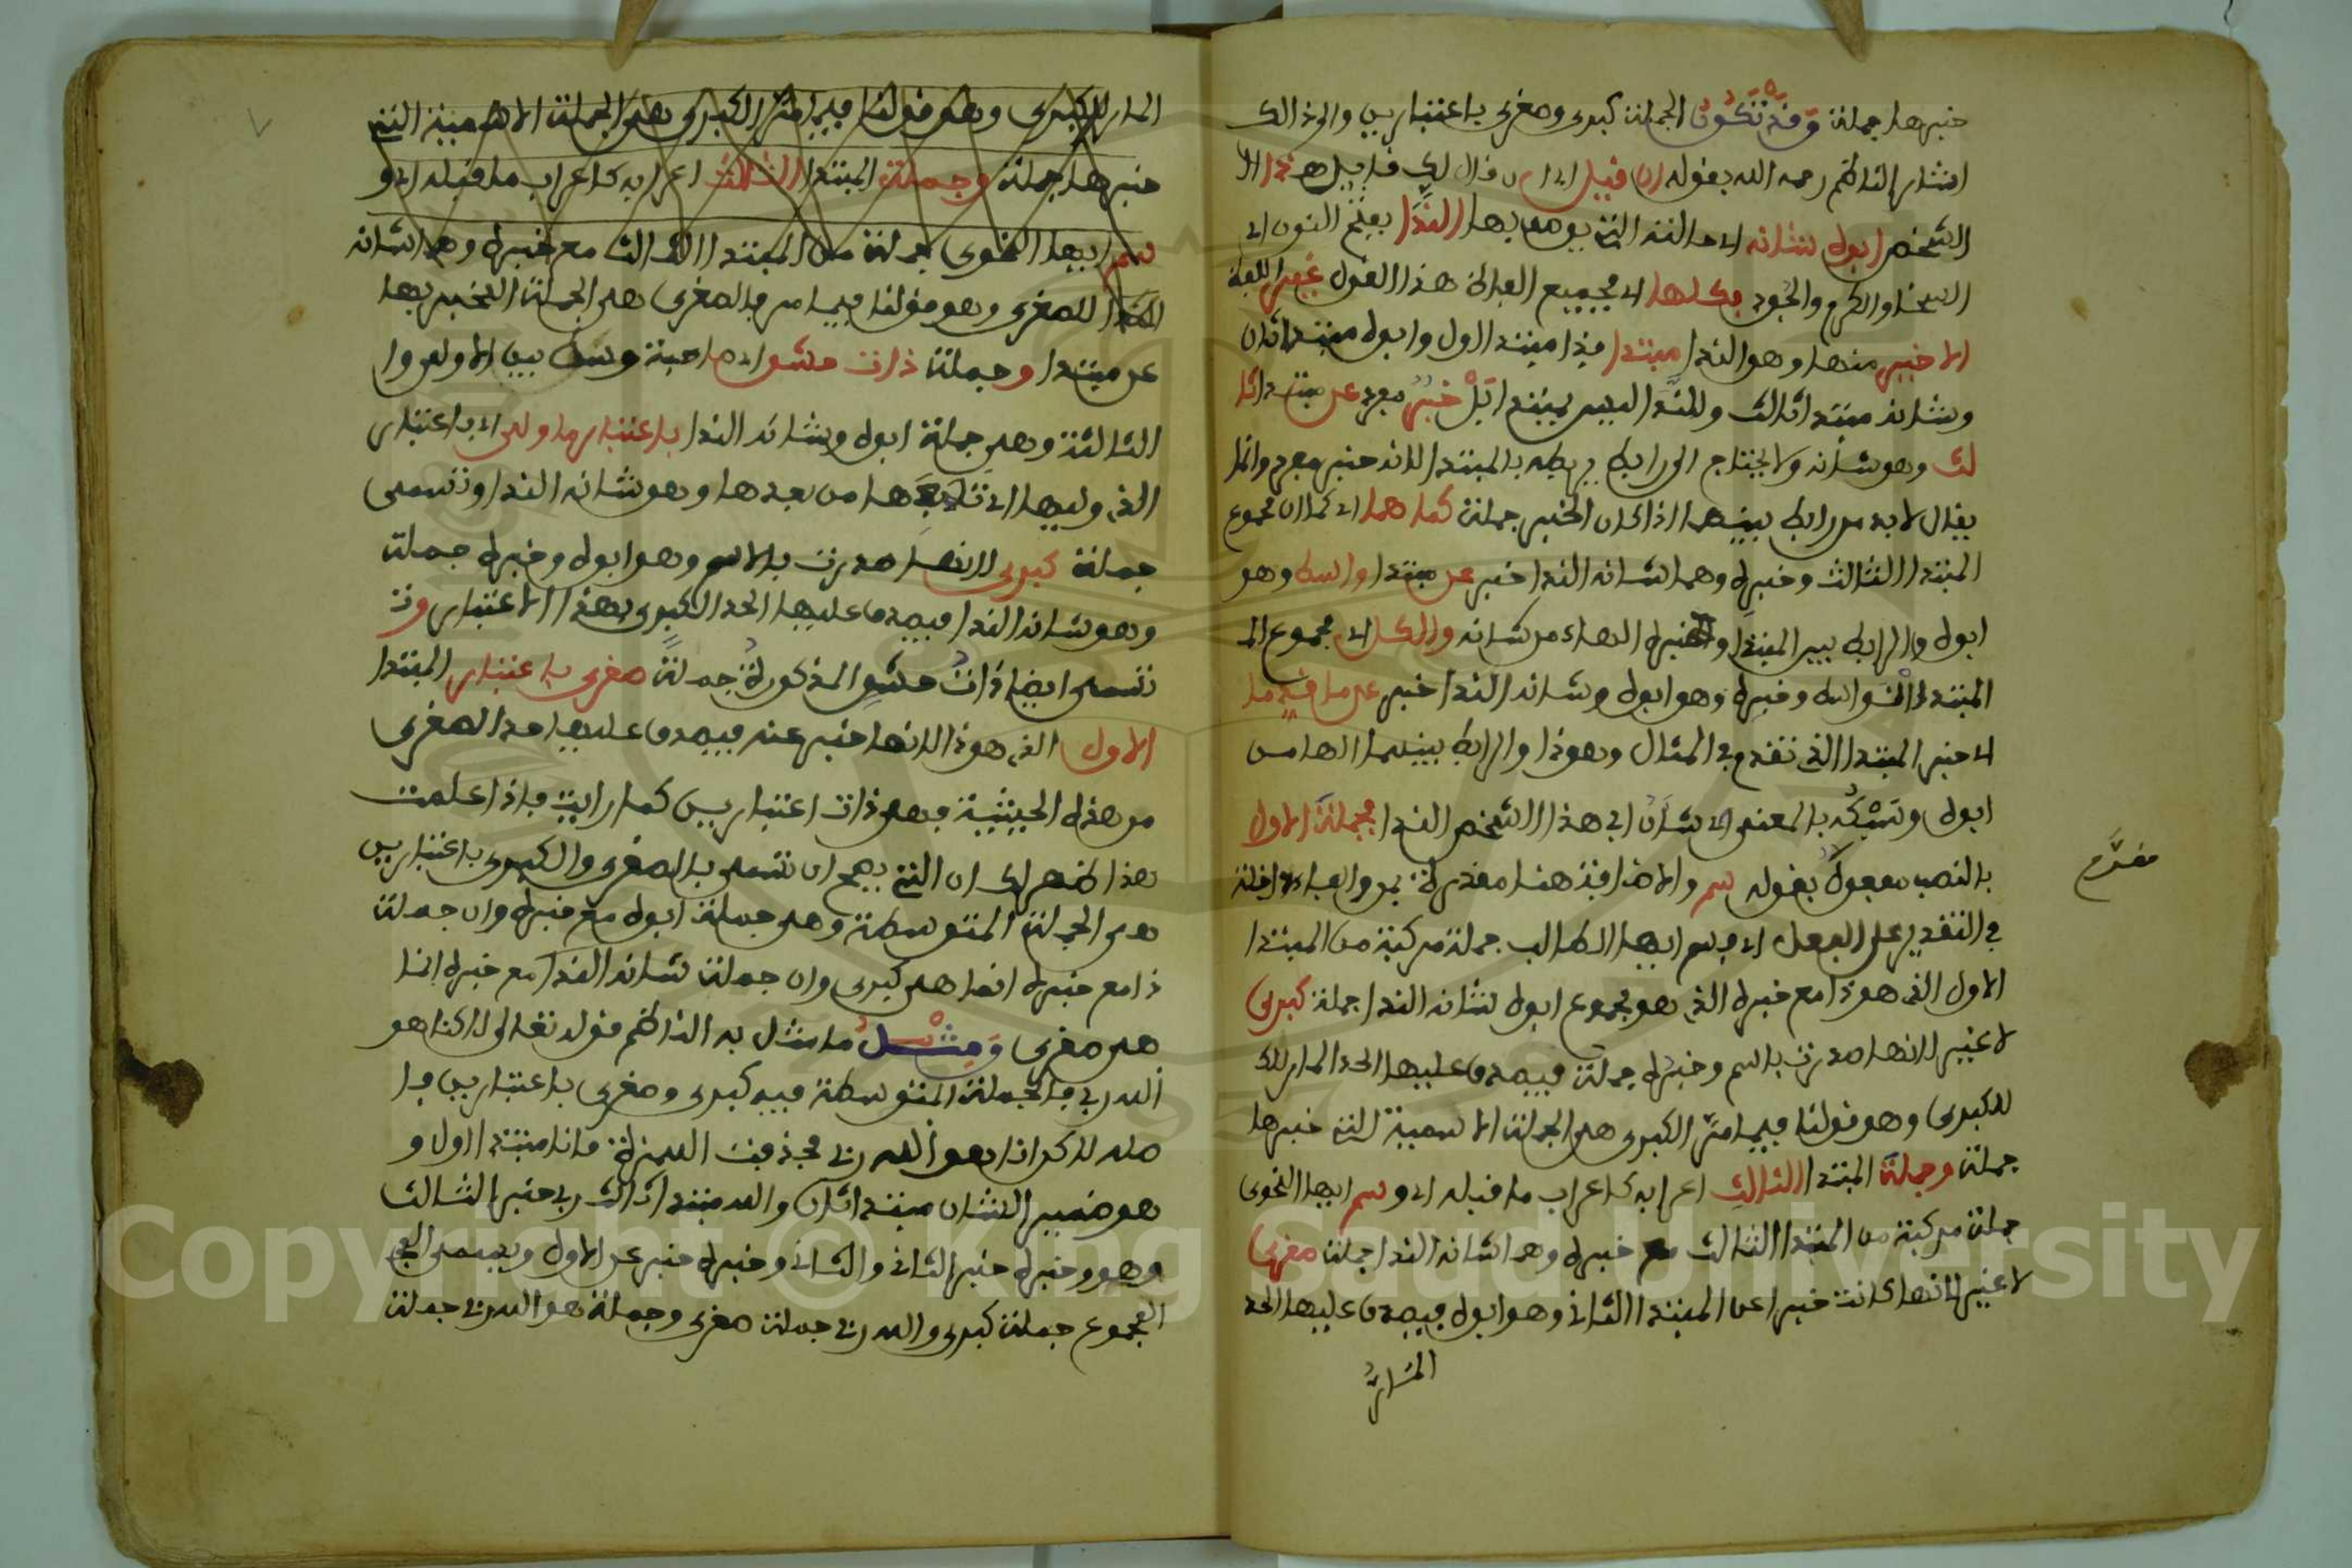 خبرها جملة وقد تكون الجملة كبرى وصغرى باعتبارين والى ذالك
اشار الناظم رحمه الله بقوله ان قيل اي ان قال لك قايل هذا اي
الشخص ابوه شانه اي حالته التي يوصف بها الندا بفتح النون اي
السخا والكرم والجود فكلها اي فجميع الفاظ هذا القول غير اللفظ
الاخير منها وهو الندا مبتدا فذا مبتدا اول وابوه مبتدا ثان
وشانه مبتدا ثالث والندا ليس بمبتدا بل خبر مفرد عن مبتدا ثا
لث وهو شانه ولا يحتاج الى رابط يربطه بالمبتدا لانه خبر مفرد وانما
يقال لابد من رابط بينهما اذا كان الخبر جملة كما هما اي كما ان مجموع
المبتدا الثالث وخبره وهما شانه الندا خبر عن مبتدا واسط وهو
ابوه والرابط بين المبتدا وخبره الهاء من شانه والكل اي مجموع الم
المبتدا الواسط وخبره وهو ابوه وشانه الندا خبر عن ما قدما
اي خبر المبتدا الذي تقدم في المثال وهو ذا والرابط بينهما الها من
ابوه وسبكه بالمعنى اي شان ابي هذا الشخص الندا فجملة الاول
بالنصب مفعول بقوله سم والاضافة هنا مقدرة بمن والفاء داخلة
في التقدير على الفعل اي فسم ايها الطالب جملة مركبة من المبتدا
الاول الذي هو ذا مع خبره الذي هو مجموع ابوه شانه الندا جملة كبرى
لا غير لانها صدرت باسم وخبره جملة فيصدق عليها الحد المار للك
للكبرى وهو قولنا فيما مر الكبرى هي الجملة الاسمية التي خبرها
جملة وجملة المبتدا الثالث اعرابه كاعراب ما قبله اي وسم ايها النحوى
جملة مركبة من المبتدا الثالث مع خبره وهما شانه الندا جملة صغرى
لا غير لانها كانت خبرا عن المبتدا الثاني وهو ابوه فيصدق عليها الحد
المار
مقدم
المار للكبرى وهو قولنا فيما مر الكبرى هي الجملة الاسمية التي
خبرها جملة وجملة المبتدا الثالث اعرابه كاعراب ما قبله اي و
سم ايها النحوى جملة من المبتدا الثالث مع خبره وهما شانه
الندا للصغرى وهو قولنا فيما مر والصغرى هي الجملة المخبر بها
عن مبتدا وجملة ذات حشو اي صاحبة وسط بين الاولى وا
الثالثة وهي جملة ابوه وشانه الندا باعتبار ما ولي اي باعتبار
الذي وليها اي تابعها من بعدها وهو شانه الندا وتسمى
جملة كبرى لانها صدرت بالاسم وهو ابوه وخبره جملة
وهو شانه الندا فيصدق عليها الحد الكبرى بهذا الاعتبار وت
تسمى ايضا ذات حشو المذكورة جملة صغرى باعتبار المبتدا
الاول الذي هو ذا لانها خبر عنه فيصدق عليها حد الصغرى
من هذه الحيثية فهي ذات اعتبارين كما رايت فاذا علمت
هذا ظهر لك ان التي يصح ان تسمى بالصغرى والكبرى باعتبارين
هي الجملة المتوسطة وهي جملة ابوه مع خبره وان جملة
ذا مع خبره انما هي كبرى وان جملة شانه الندا مع خبره انما
هي صغرى ومثل ما مثل به الناظم قوله تعالى لاكنا هو
الله ربي فالجملة المتوسطة فيه كبرى وصغرى باعتبارين فا
صله لاكن انا هو الله ربي فحذفت الهمزة فانا مبتدا اول و
هو ضمير الشان مبتدا ثان والله مبتدا ثالث ربي خبر الثالث
وهو وخبره خبر الثاني والثاني وخبره خبر عن الاول ويسمى الم
المجموع جملة كبرى والله ربي جملة صغرى وجملة هو الله ربي جملة
Copyright © King Saud University